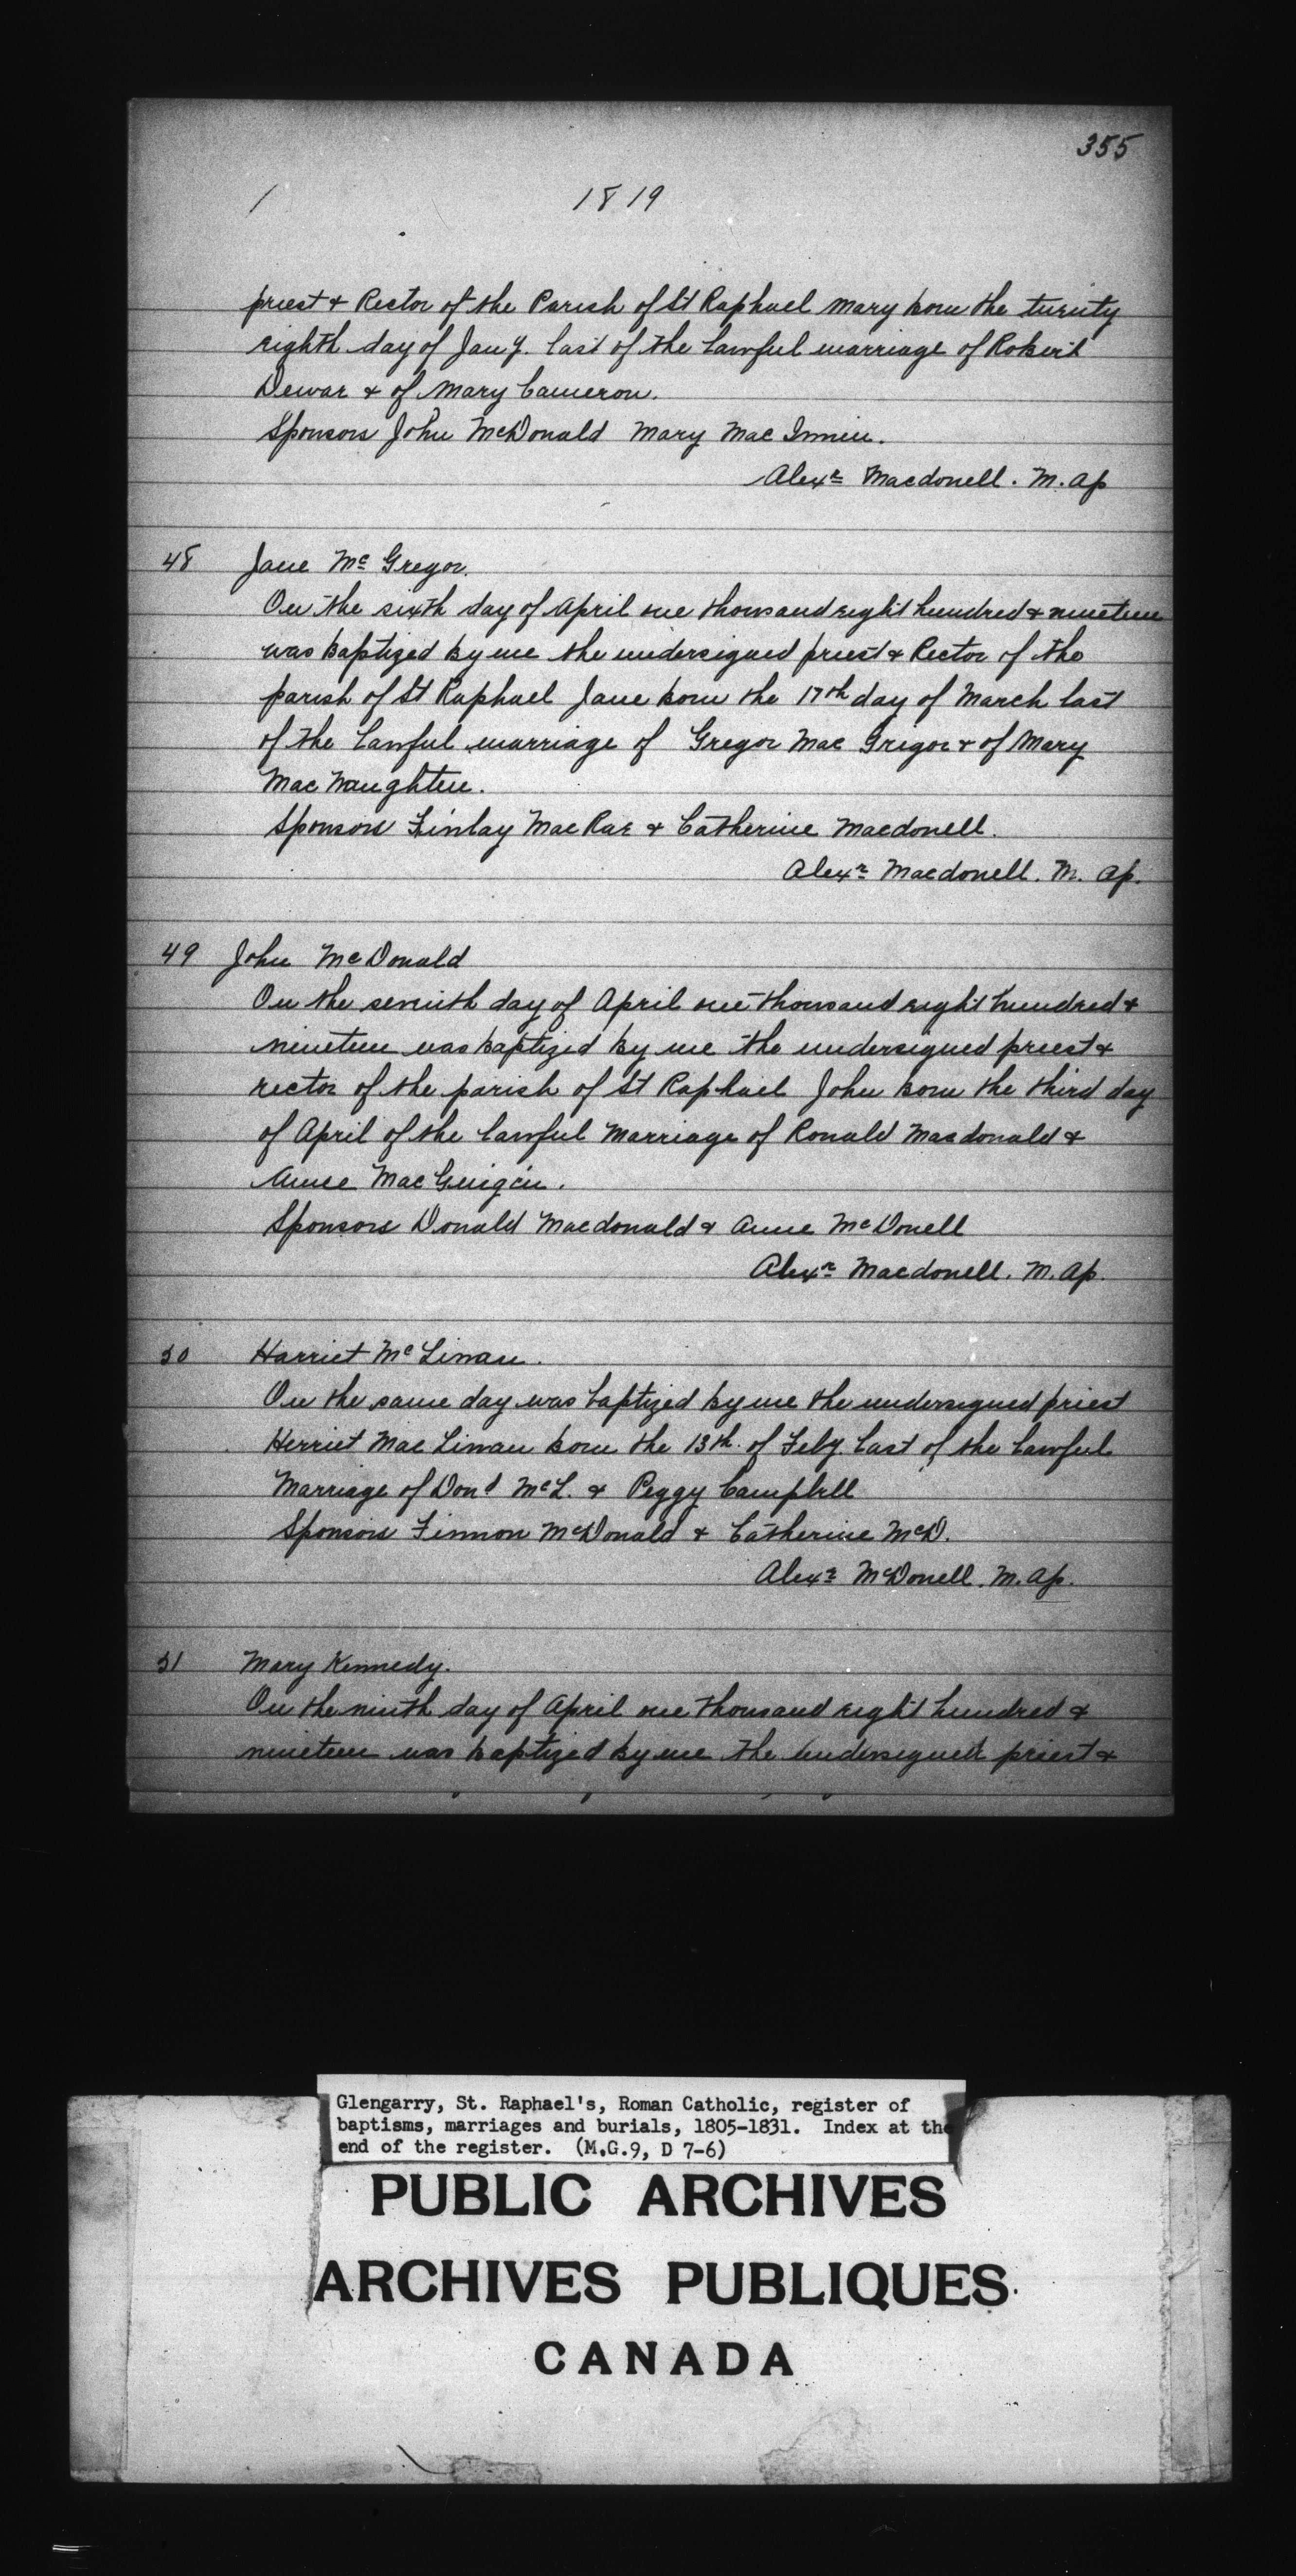 355
1819
priest & Rector of the Parish of St Raphael Mary born the twenty
eighth day of Jany. last of the lawful marriage of Robert
Dewar & of Mary Cameron.
Sponsors John McDonald Mary Mac Innin.
Alexr Macdonell. M. Ap
48 Jane Mc Gregor.
On the sixth day of April one thousand eight hundred & nineteen
was baptized by me the undersigned priest & Rector of the
parish of St Raphael Jane born the 17th day of March last
of the lawful marriage of Gregor Mac Grigor & of Mary
Mac Naughten.
Sponsors Finlay MacRae & Catherine Macdonell.
Alexr Macdonell. M. Ap.
49 John McDonald
On the seventh day of April one thousand eight hundred &
nineteen was baptized by me the undersigned priest &
rector of the parish of St Raphael John born the third day
of April of the lawful Marriage of Ronald Macdonald &
Anne Mac
Sponsors Donald Macdonald & Anne McDonell
Alexr Macdonell. M. Ap.
50 Harriet Mc Linan.
On the same day was baptized by me the undersigned priest
Herriet Mac Linan born the 13th of Feby. last of the lawful
Marriage of Dond McL. & Peggy Campbell
Sponsors Finnon McDonald & Catherine McD.
Alexr McDonell. M. Ap.
51 Mary Kennedy.
On the ninth day of April one thousand eight hundred &
nineteen was baptized by me the undersigned priest &
Glengarry, St. Raphael's, Roman Catholic, register of
baptisms, marriages and burials, 1805-1831. Index at the
end of the register. (M.G.9, D 7-6)
PUBLIC ARCHIVES
ARCHIVES PUBLIQUES
CANADA